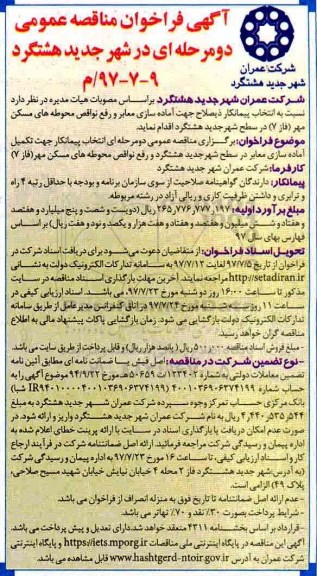 آگهی فراخوان مناقصه عمومی
دومرحله ای در شهر جدید هشتگرد
۹-۷-۹۷/م
شرکت عمران
شهر جدید هشتگرد
شرکت عمران شهر جدید هشتگرد براساس مصوبات هیات مدیره در نظر دارد
نسبت به انتخاب پیمانکار ذیصلاح جهت آماده سازی معابر و رفع نواقص محوطه های مسکن
مهر (فاز ۷) در سطح شهر جدید هشتگرد اقدام نماید.
موضوع فراخوان: برگزاری مناقصه عمومی دومرحله ای انتخاب پیمانکار جهت تکمیل
آماده سازی معابر در سطح شهر جدید هشتگرد و رفع نواقص محوطه های مسکن مهر (فاز ۷)
کارفرما: شرکت عمران شهر جدید هشتگرد
پیمانکار: دارندگان گواهینامه صلاحیت از سوی سازمان برنامه و بودجه با حداقل رتبه ۴ راه
و ترابری و داشتن ظرفیت کاری و ریالی آزاد در رشته مربوطه.
مبلغ برآورد اولیه: ۲۶۵,۷۷۶,۷۷۷,۱۹۷ ریال (دویست و شصت و پنج میلیارد و هفتصد
و هفتاد و شش میلیون و هفتصد و هفتاد و هفت هزار و یکصد و نود و هفت ریال) بر اساس
فهارس بهای سال ۹۷
تحویل اسناد فراخوان: از متقاضیان دعوت می‌شود برای دریافت اسناد شرکت در
فراخوان از تاریخ ۹۷/۷/۵ لغایت ۹۷/۷/۱۲ به سامانه تدارکات الکترونیک دولت به نشانی
http://setadiran.ir مراجعه نمایند. آخرین مهلت بارگذاری اسناد مناقصه در سایت
مذکور تا ساعت ۱۶:۰۰ روز دو شنبه مورخ ۹۷/۷/۲۳ می باشد. اسناد ارزیابی کیفی در
ساعت ۱۱ روز سه شنبه مورخ ۹۷/۷/۲۴ در اتاق کنفرانس مدیر عامل از طریق سامانه
تدارکات الکترونیک دولت بازگشایی می شود. زمان بازگشایی پاکات پیشنهاد مالی به اطلاع
مناقصه گران خواهد رسید.
- نوع تضمین شرکت در مناقصه: اصل فیش یا ضمانت نامه ای مطابق آئین نامه
بانک مرکزی حساب تمرکز وجوه سپرده شرکت عمران شهر جدید هشتگرد به مبلغ
۴,۴۴۰,۵۳۵,۵۴۴ ریال به نام شرکت عمران شهر جدید هشتگرد واریز و ارائه شود. در
صورت عدم امکان دریافت یا بارگذاری اسناد در سایت با ارائه پرینت خطای اعلام شده به
اداره پیمان و رسیدگی شرکت مراجعه فرمائید. ارائه اصل ضمانتنامه شرکت در فرآیند ارجاع
کار و اسناد ارزیابی کیفی، تا ساعت ۱۶ مورخ ۹۷/۷/۲۳ به اداره پیمان و رسیدگی شرکت
(به آدرس: شهر جدید هشتگرد فاز ۲ محله ۴ خیابان نیایش خیابان شهید مسیح صلاحی،
پلاک ۴۹) الزامی است.
- عدم ارائه اصل ضمانتنامه تا تاریخ فوق به منزله انصراف از فراخوان می باشد.
- شرایط پرداخت بصورت ۳۰٪ نقد و ۷۰٪ تهاتر می باشد.
- قرارداد بر اساس بخشنامه ۴۳۱۱ منعقد خواهد شد. دارای تعدیل و پیش پرداخت می باشد.
آگهی این مناقصه در پایگاه اینترنتی ملی مناقصات https://iets.mporg.ir و پایگاه اینترنتی
شرکت عمران به آدرس www.hashtgerd-ntoir.gov.ir قابل مشاهده می باشد.